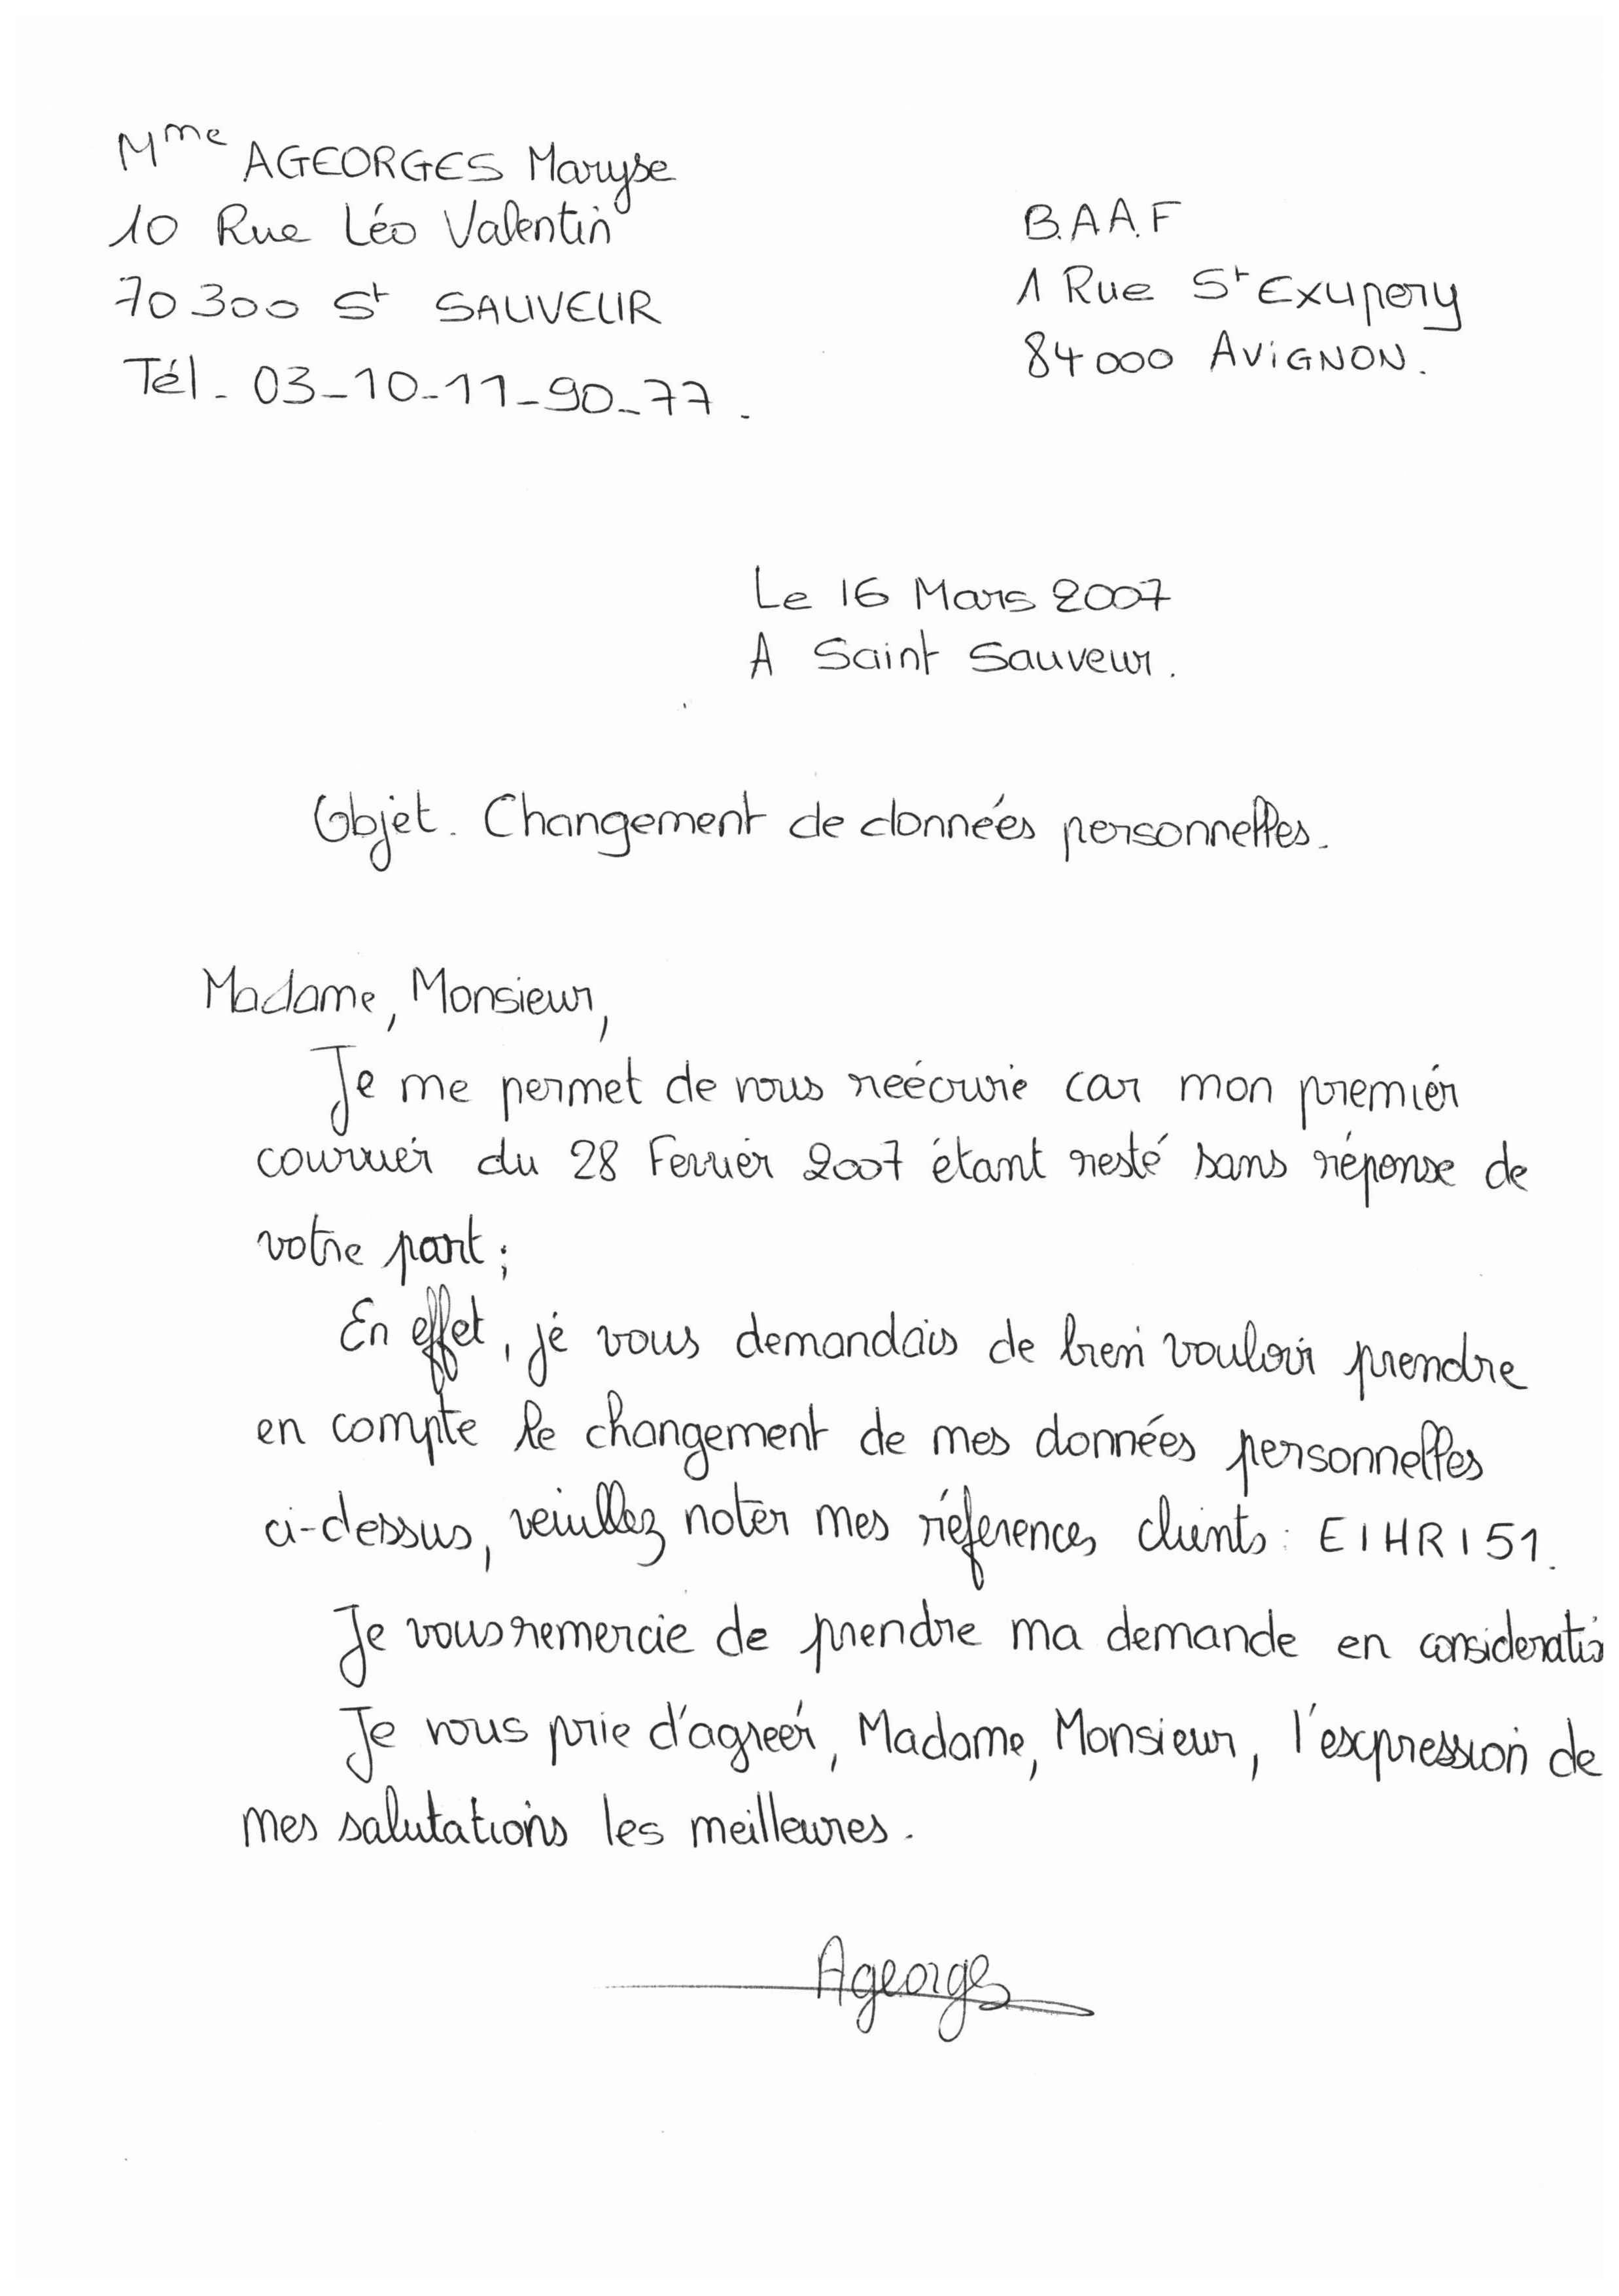 Mme AGEORGES Maryse
10 Rue Léo Valentin
70300 St SAUVEUR
Tél - 03-10-11-90-77.
B.A.A.F
1 Rue St Exupery
84000 AViGNON.
Le 16 Mars 2007
A Saint Sauveur.
Objet. Changement de données personnelles.
Madame, Monsieur,
Je me permet de vous reécrire car mon premier
courrier du 28 Fevrier 2007 étant resté sans réponse de
votre part ;
En effet, je vous demandais de bien vouloir prendre
en compte le changement de mes données personnelles
ci-dessus, veuillez noter mes réferences clients : EIHRI51.
Je vous remercie de prendre ma demande en consideratio
Je vous prie d'agreér, Madame, Monsieur, l'expression de
mes salutations les meilleures.
Ageorges